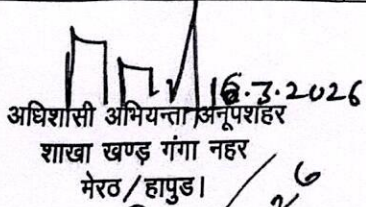 16.3.2026
अधिशासी अभियन्ता अनूपशहर
शाखा खण्ड़ गंगा नहर
मेरठ/हापुड।